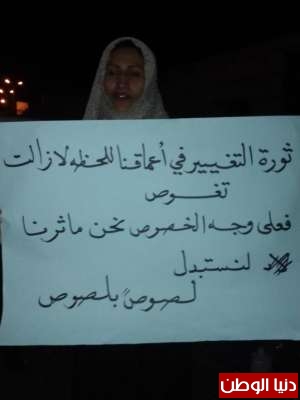 ثورة التغيير في أعماقنا للحظه لازالت
تغوص
فعلى وجه الخصوص نحن ماثرنا
لنستبدل
لصوصً بلصوص
دنيا الوطن